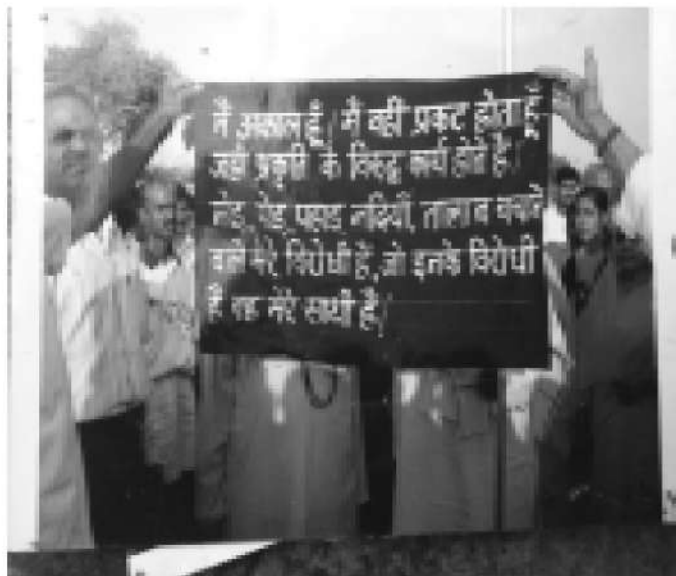 मैं अकाल हूँ। मैं वहीं प्रकट होता हूँ
जहाँ प्रकृति के विरुद्ध कार्य होते हैं।
मेड़, पेड़, पहाड़ नदियाँ, तालाब बचाने
वाले मेरे विरोधी हैं, जो इनके विरोधी
हैं वह मेरे साथी हैं।